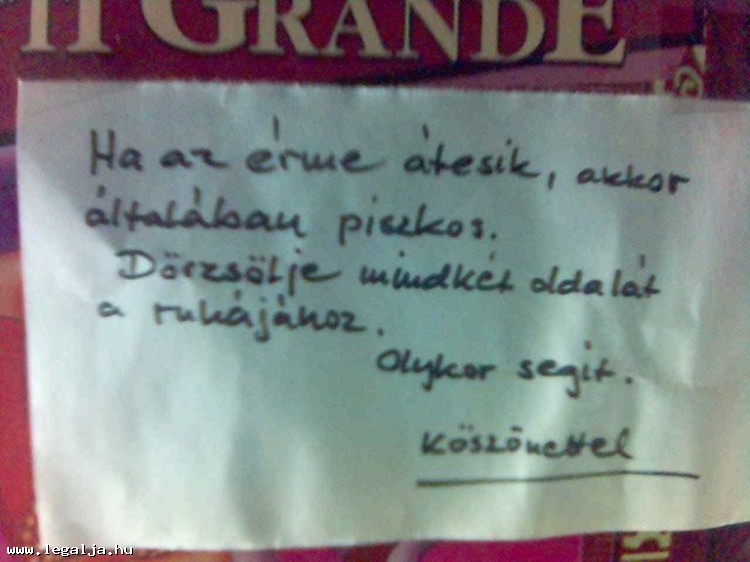 GRANDE
Ha az érme átesik, akkor
általában piszkos.
Dörzsölje mindkét oldalát
a ruhájához.
Olykor segit.
Köszönettel
www.legalja.hu